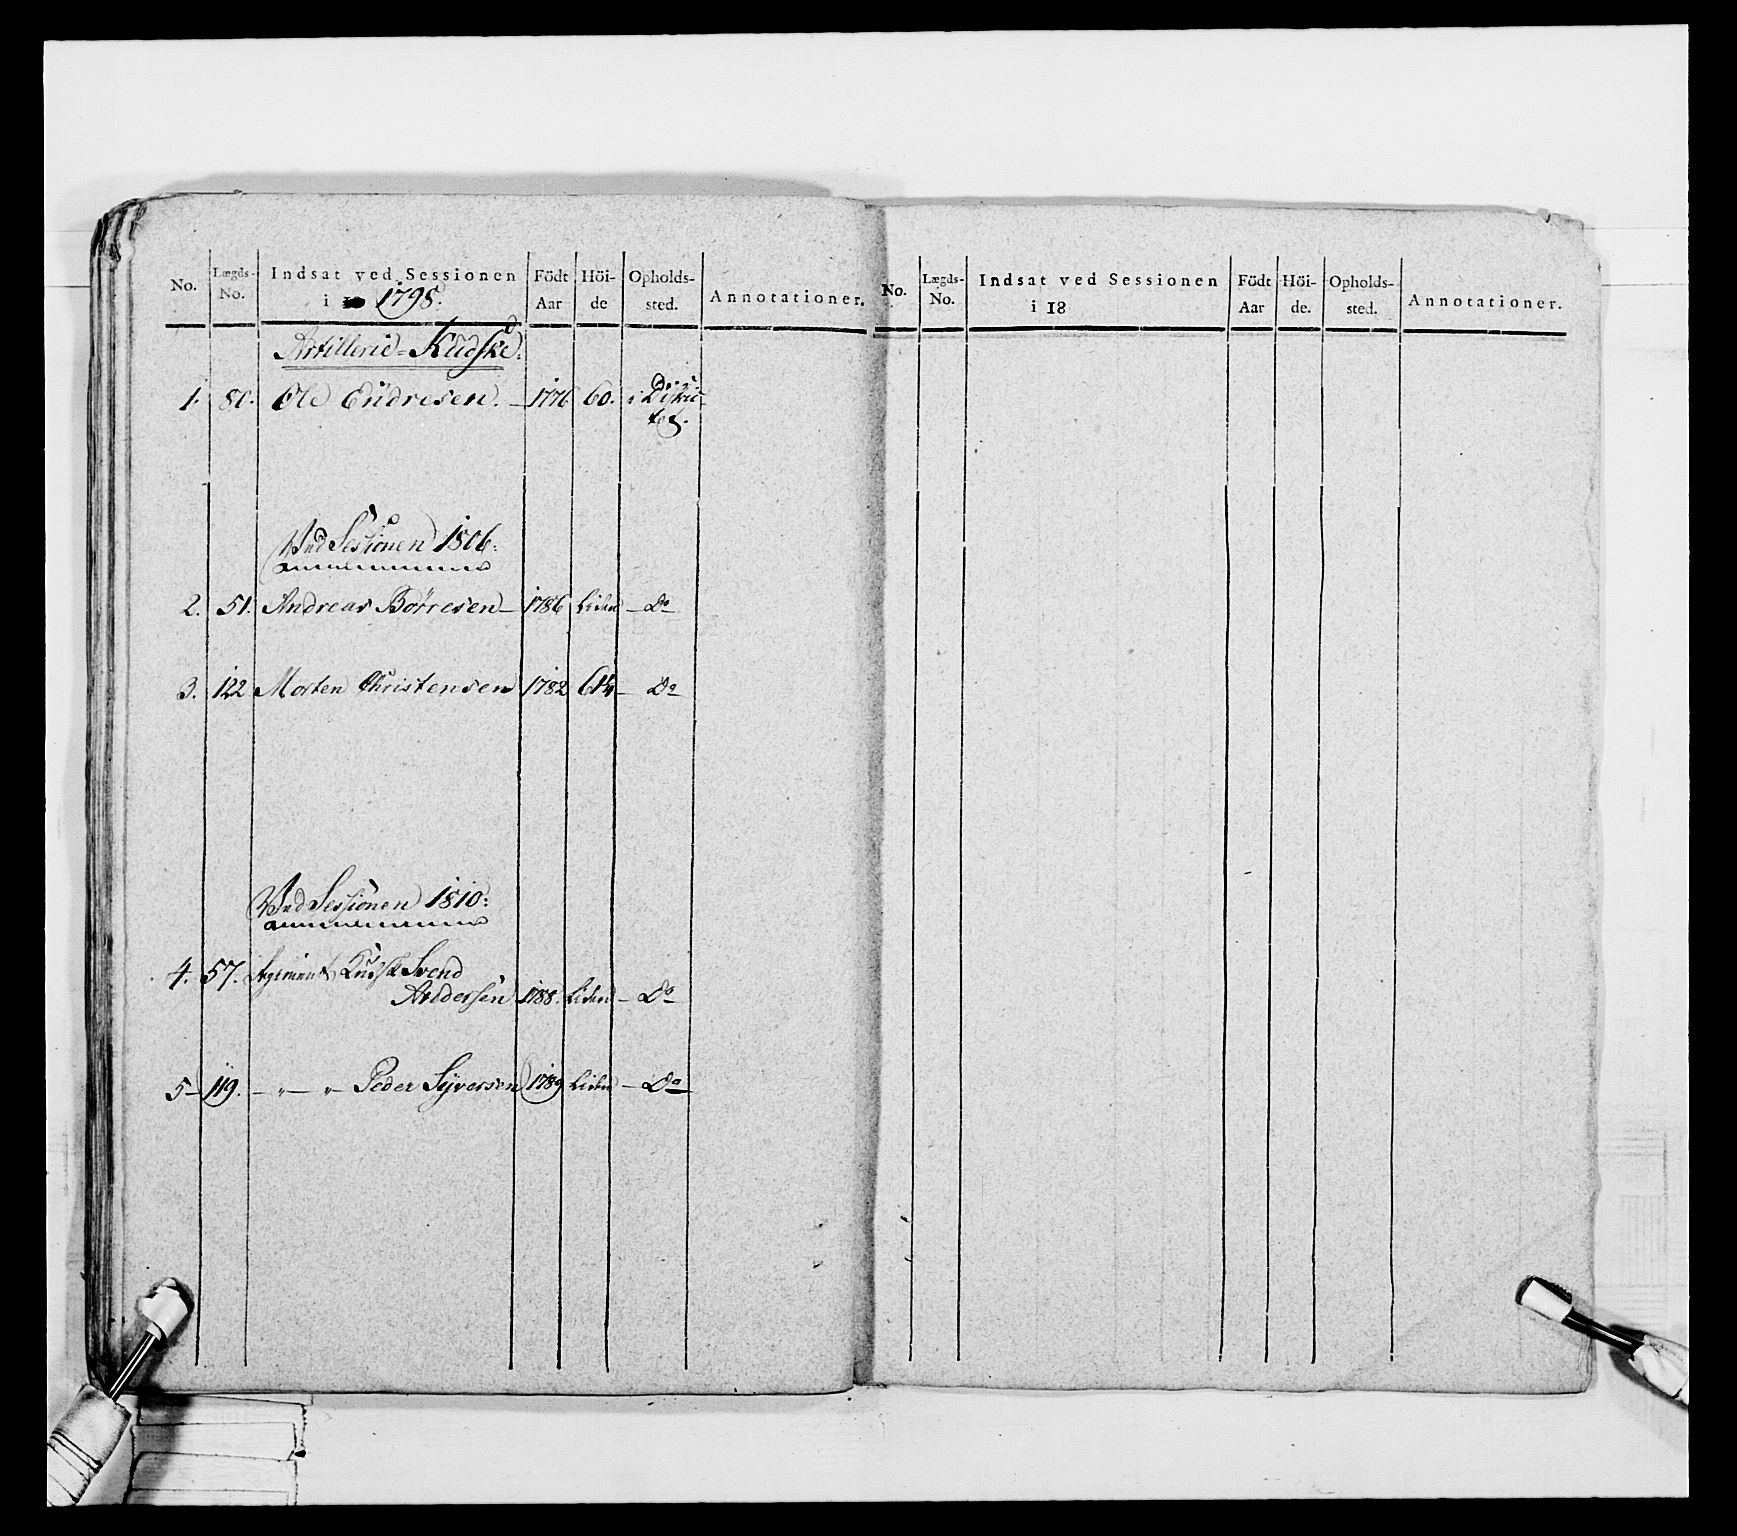 No. Lægds- No. Indsat ved Sessionen i 1798. Födt Aar Höi- de Opholds- sted. Annotationer.
Artillerie-Kudske.
1. 80. Ole Endresen. 1776 60. i Distric-
tet.
Ved Sessionen 1806.
2. 51. Andreas Børresen 1786 Liden Do
3. 122 Morten Christensen 1782 Do
Ved Sessionen 1810:
4. 57. Kudsk Svend
Andersen 1788. Liden Do
5 119. " " Peder Syversen 1789 Liden Do
No. Lægds- No. Indsat ved Sessionen i 18 Födt Aar Höi- de. Opholds- sted. Annotationer.